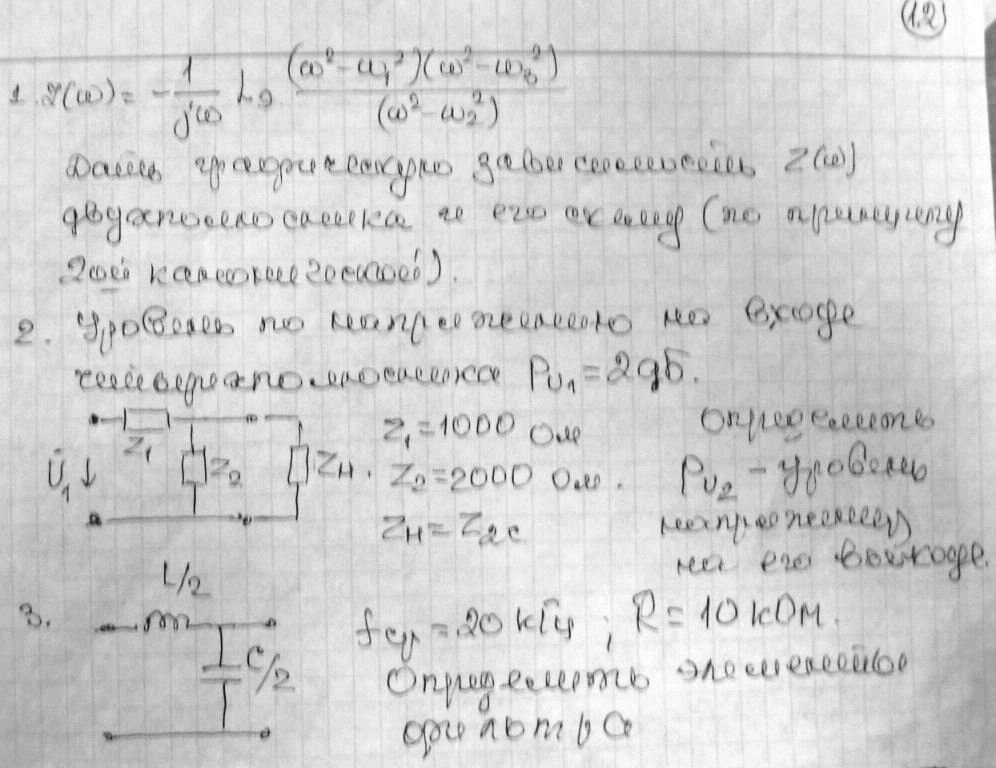 (1.2)
1. Z(ω) = - 1/jω L∂. (ω² - ω₁²)(ω² - ω₃²)/(ω² - ω₂²)
Дать графическую зависимость Z(ω)
двухполюсника и его схему (по принципу
2ой канонической).
2. Уровень по напряжению на входе
четырехполюсника Pu₁ = 2дБ.
Z₁ = 1000 Ом
Определить
U̇₁ ↓ Z₁ Z₂ Zн.
Z₂ = 2000 Ом.
Pu₂ - уровень
Zн = Z₂c
напряжения
на его выходе.
3. L/2
C/2
fср = 20 кГц ; R = 10 кОм.
Определить элементы
фильтра